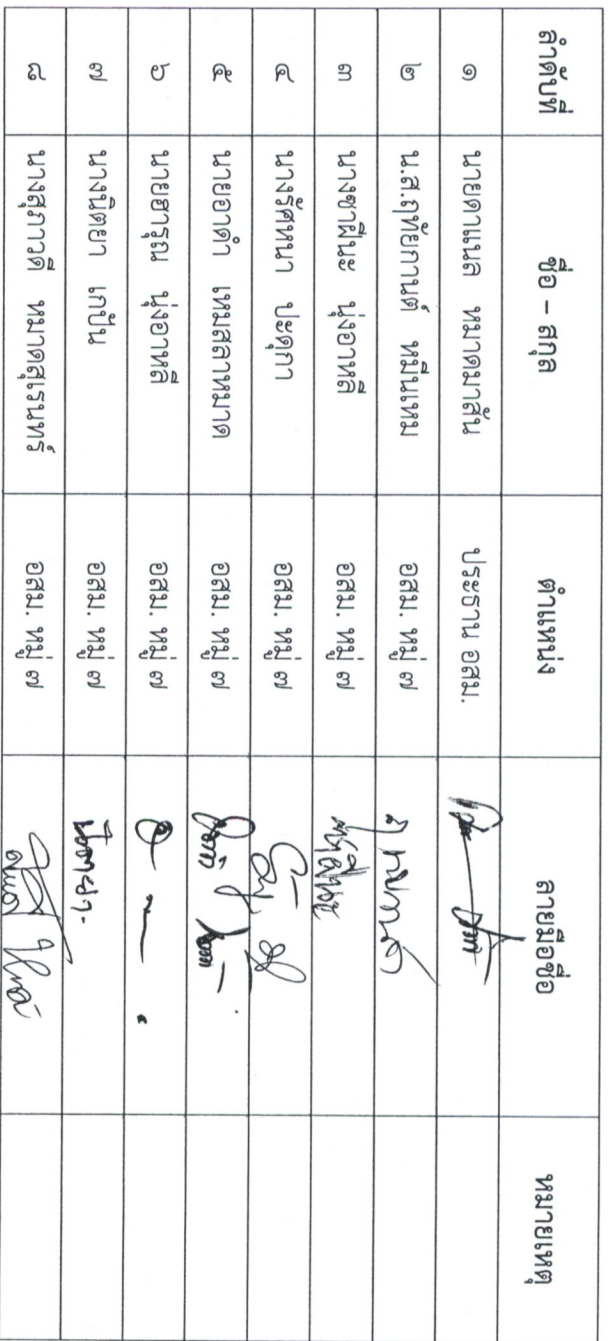 ลำดับที่ ชื่อ – สกุล ตำแหน่ง ลายมือชื่อ หมายเหตุ
๑ นายดาแนล หมาดมาสัน ประธาน อสม.
๒ น.ส.ฤทัยกานต์ หมีนเหม อสม. หมู่ ๗
๓ นางซาฝีนะ บุ่งอาหลี อสม. หมู่ ๗
๔ นางรัศหนา ปะดุกา อสม. หมู่ ๗
๕ นายอาดำ เหมสลาหมาด อสม. หมู่ ๗
๖ นายฮารูณ บุ่งอาหลี อสม. หมู่ ๗
๗ นางนิตยา เกปัน อสม. หมู่ ๗ นิตยา
๘ นางสุภาวดี หมาดสุเรนทร์ อสม. หมู่ ๗